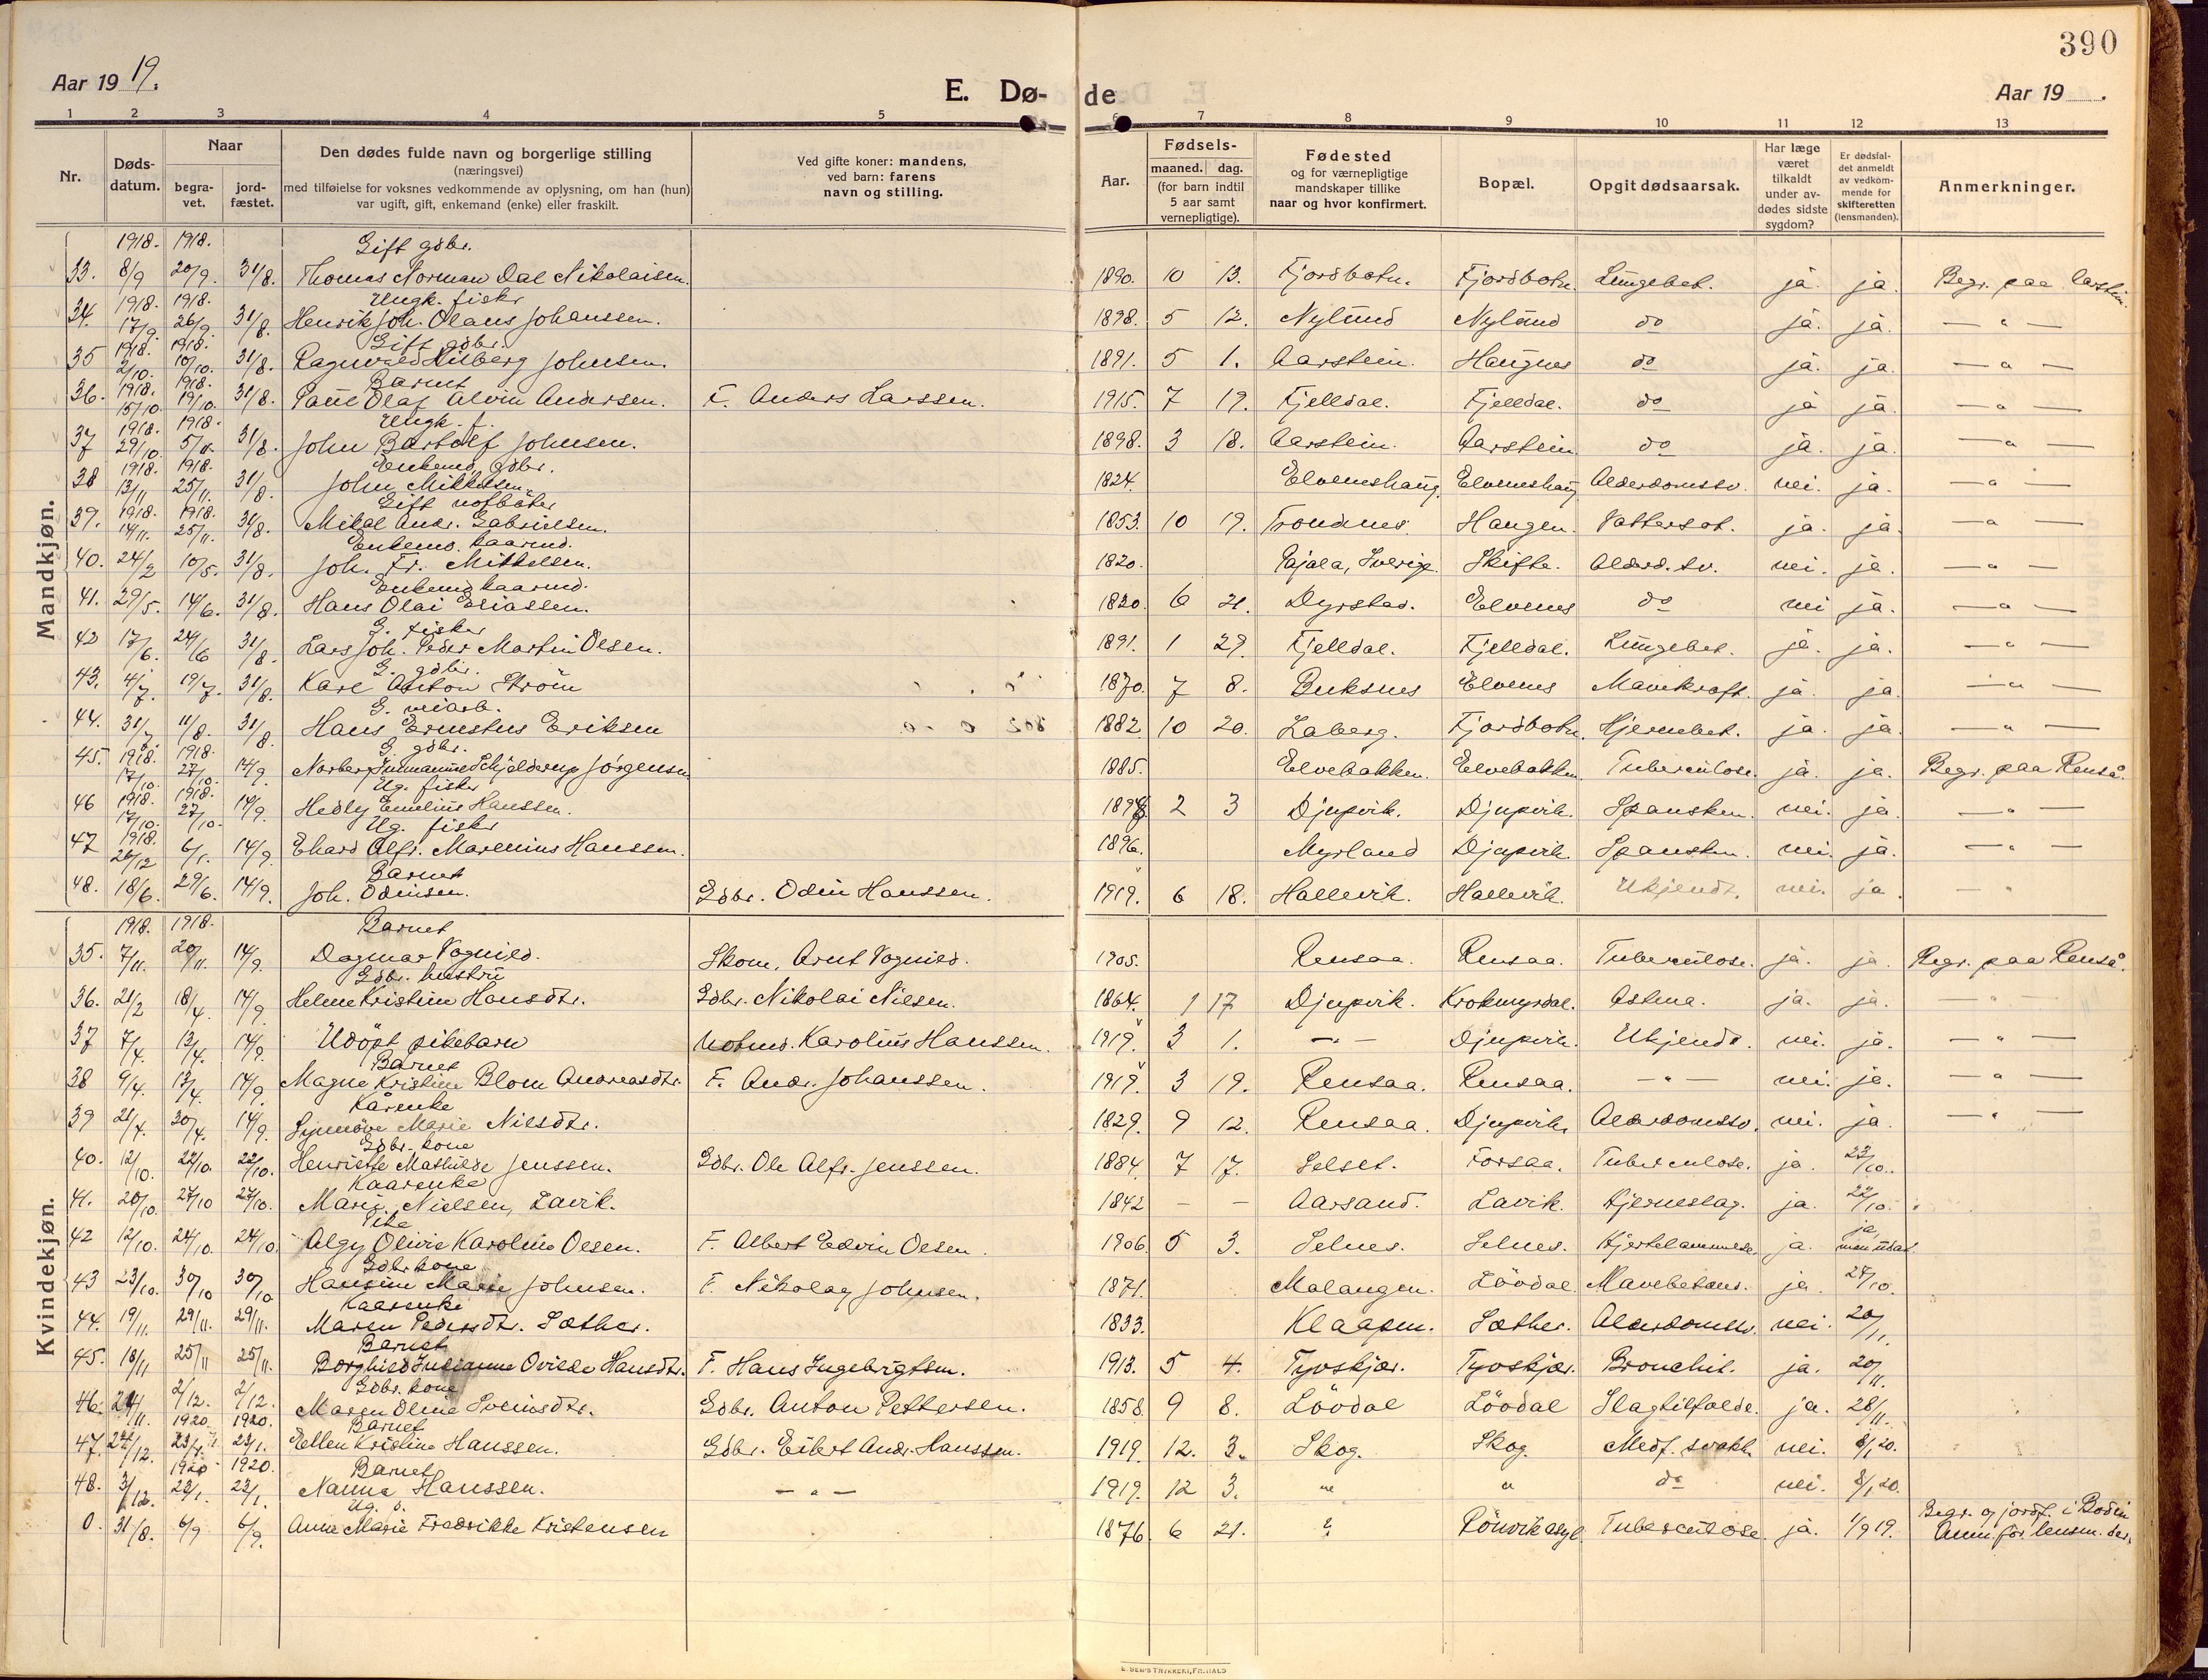 390
Aar 1919.
E. Dø-
de
Aar 19 .
1 2 3 4 5 6 7 8 9 10 11 12 13
Nr.
Døds-datum.
Naar
begra-vet.
jord-fæstet.
Den dødes fulde navn og borgerlige stilling
(næringsvei)
med tilføielse for voksnes vedkommende av oplysning, om han (hun)
var ugift, gift, enkemand (enke) eller fraskilt.
Ved gifte koner: mandens,
ved barn: farens
navn og stilling.
Aar.
Fødsels-
maaned. dag.
(for barn indtil
5 aar samt
vernepligtige).
Fødested
og for værnepligtige
mandskaper tillike
naar og hvor konfirmert.
Bopæl.
Opgit dødsaarsak.
Har læge
været
tilkaldt
under av-
dødes sidste
sygdom?
Er dødsfal-
det anmeldt
av vedkom-
mende for
skifteretten
(lensmanden).
Anmerkninger.
Mandkjøn.
1918. 1918. Gift gdbr.
33. 8/9 20/9. 31/8. Thomas Norman Dal Nikolaisen. 1890. 10 13. Fjordbotn. Fjordbotn. Lungebet. ja. ja. Begr. paa
1918. 1918. Ungk. fisker
34. 17/9 26/9. 31/8. Henrik Joh. Olaus Johanssen. 1898. 5 12. Nylund Nylund do ja. ja. — " —
1918. 1918. Gift gdbr.
35 2/10. 10/10. 31/8. Johnsen. 1891. 5 1. Aarstein. Haugnes do ja. ja. — " —
1918. 1918. Barnet
36. 15/10. 19/10. 31/8. Olaf Alvin Andersen. F. Anders Larssen. 1915. 7 19. Fjelldal. Fjelldal. do ja ja. — " —
1918. 1918. Ungk. f.
37 29/10. 5/11. 31/8. John Bartolf Johnsen. 1898. 3 18. Aarstein. Aarstein do ja. ja. — " —
1918. 1918. Enkemd. gdbr.
38 13/11 25/11. 31/8. John Mikkelsen. 1824. Elveneshaug. Elveneshaug Alderdomssv. nei. ja. — " —
1918. 1918. Gift
39. 14/11. 25/11. 31/8. Mikal Andr. Gabrielsen. 1853. 10 19. Trondnes. Haugen. Vattersot. ja. ja. — " —
Enkemd. kaarmd.
40. 24/2 10/5. 31/8. Joh. Fr. Mikkelsen. 1820. Pajala, Sverige. Skifte. Alderd. sv. nei. ja. — " —
Enkemd. kaarmd.
41. 29/5. 14/6. 31/8. Hans Olai Eliassen. 1830. 6 21. Dyrstad. Elvenes do nei ja. — " —
G. fisker
42 17/6. 24/6 31/8. Lars Joh. Peder Martin Olsen. 1891. 1 29. Fjelldal. Fjelldal. Lungebet. ja. ja. — " —
G. gdbr.
43. 4/7. 19/7. 31/8. Karl Anton Strøm 1870. 7 8. Buksnes Elvenes Mavekræft. ja. ja. — " —
G. veiarb.
44. 31/7 11/8. 31/8. Hans Ernstus Eriksen 1882. 10 20. Laberg. Fjordbotn. Hjernebet. ja. ja. — " —
1918. 1918. G. gdbr.
45. 17/10. 27/10. 14/9. Schjelderup Jørgensen 1885. Elvebakken. Elvebakken. Tuberculose. ja. ja. Begr. paa Renså.
1918. 1918. Ug. fisker
46 17/10. 27/10. 14/9. Hedly Emelius Hanssen. 2 3 Djupvik. Djupvik. Spansken. nei. ja. — " —
1918. Ug. fisker
47 26/12 6/1. 14/9. Ehard Alfr. Marenius Hanssen. 1896. Myrland Djupvik. Spansken. nei. ja. — " —
Barnet
48. 18/6. 29/6. 14/9. Joh. Odinsen. Gdbr. Odin Hanssen. 1919. 6 18. Hallevik. Hallevik. Ukjendt. nei. ja. — "
Kvindekjøn.
1918. 1918. Barnet
35. 7/11. 20/11. 14/9. Dagmar Vognild. Skom. Arnt Vognild. 1905. Rensaa. Rensaa. Tuberculose. ja. ja. Begr. paa Renså.
Gdbr. hustru
36. 21/2 18/4. 14/9. Helene Kristine Hansdtr. Gdbr. Nikolai Nilsen. 1864. 1 17 Djupvik. Krokmyrdal. Astma. ja. ja. — " —
37 7/4. 13/4. 14/9. Udöpt pikebarn Karolius Hanssen. 1919. 3 1. — " — Djupvik. Ukjendt. nei. ja. — " —
Barnet
38 9/4. 13/4. 14/9. Magna Kristine Blom Andreasdtr. F. Andr. Johanssen. 1919. 3 19. Rensaa. Rensaa. — " — nei. ja. — " —
Kårenke
39 21/4. 30/4. 14/9. Synnöve Marie Nilsdtr. 1829. 9 12. Rensaa. Djupvik. Alderdomssv. nei. ja. — " —
Gdbr. kone
40. 12/10. 22/10. 22/10. Henriette Mathilde Jenssen. Gdbr. Ole Alfr. Jenssen. 1884. 7 17. Selset. Forsaa. Tuberculose. ja. 22/10.
Kaarenke
41. 20/10. 27/10 27/10. Marie Nielsen, Lavik. 1842 — — Aarsand. Lavik. Hjerneslag. ja. 22/10.
Pike
42 12/10. 24/10. 24/10. Algy Olivie Karoline Olsen. F. Albert Edvin Olsen. 1906. 5 3. Selnes. Selnes. Hjertelammelse. ja. ja,
Gdbr. kone
43 23/10. 30/10 30/10 Hansine Marie Johnsen. F. Nikolay Johnsen. 1871. Malangen. Lövdal. ja. 27/10.
Kaarenke
44. 19/11. 29/11. 29/11. Maren Pedersdtr. Sæther. 1833. Klaapen. Sæther. Alderdomssv. nei. 20/11.
Barnet
45. 18/11 25/11 25/11. Borghild Julianne Ovilde Hansdtr. F. Hans Ingebrigtsen. 1913. 5 4. Tyvskjær. Tyvskjær. Bronchit. ja. 20/11.
Gdbr. kone
46. 24/11. 2/12. 2/12. Maren Oline Sveinsdtr. Gdbr. Anton Pettersen. 1858. 9 8. Lövdal Lövdal Slagtilfælde. ja. 28/11.
1920. 1920. Barnet
47. 22/12. 23/1. 23/1. Ellen Kristine Hanssen. Gdbr. Eilert Andr. Hanssen. 1919. 12. 3. Skog. Skog. Medf. svakh. nei. 8/1 20.
1920 1920. Barnet
48. 3/12. 23/1. 23/1. Nanna Hanssen. — " — 1919. 12 3. " " do nei. 8/1 20.
Ug.
0. 31/8. 6/9 6/9. Anna Marie Fredrikke Kristensen 1876. 6 21. Rönvik asyl. Tuberculose. ja. 1/9 19. Begr. og jordf. i Bodin
Anm. for lensm. der.